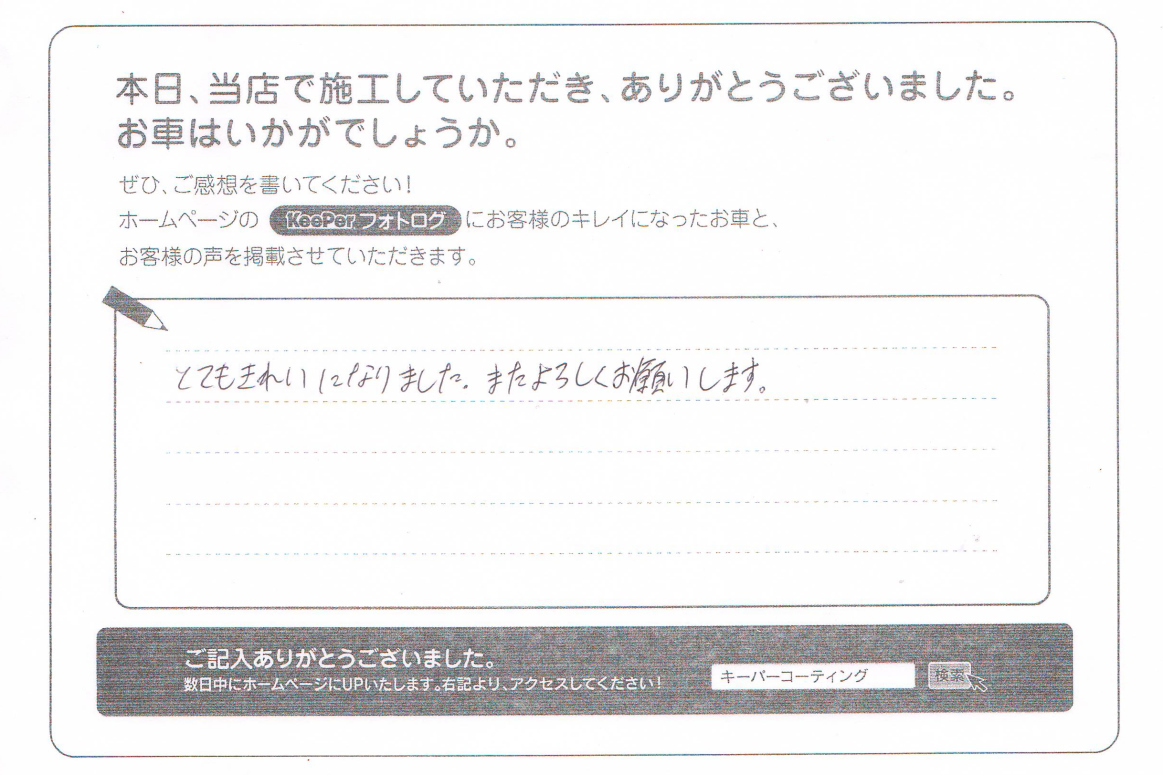 本日、当店で施工していただき、ありがとうございました。
お車はいかがでしょうか。
ぜひ、ご感想を書いてください!
ホームページの KeePer フォトログ にお客様のキレイになったお車と、
お客様の声を掲載させていただきます。
とてもきれいになりました。またよろしくお願いします。
ご記入ありがとうございました。
数日中にホームページにUPいたします。右記より、アクセスしてください!
キーパーコーティング 検索